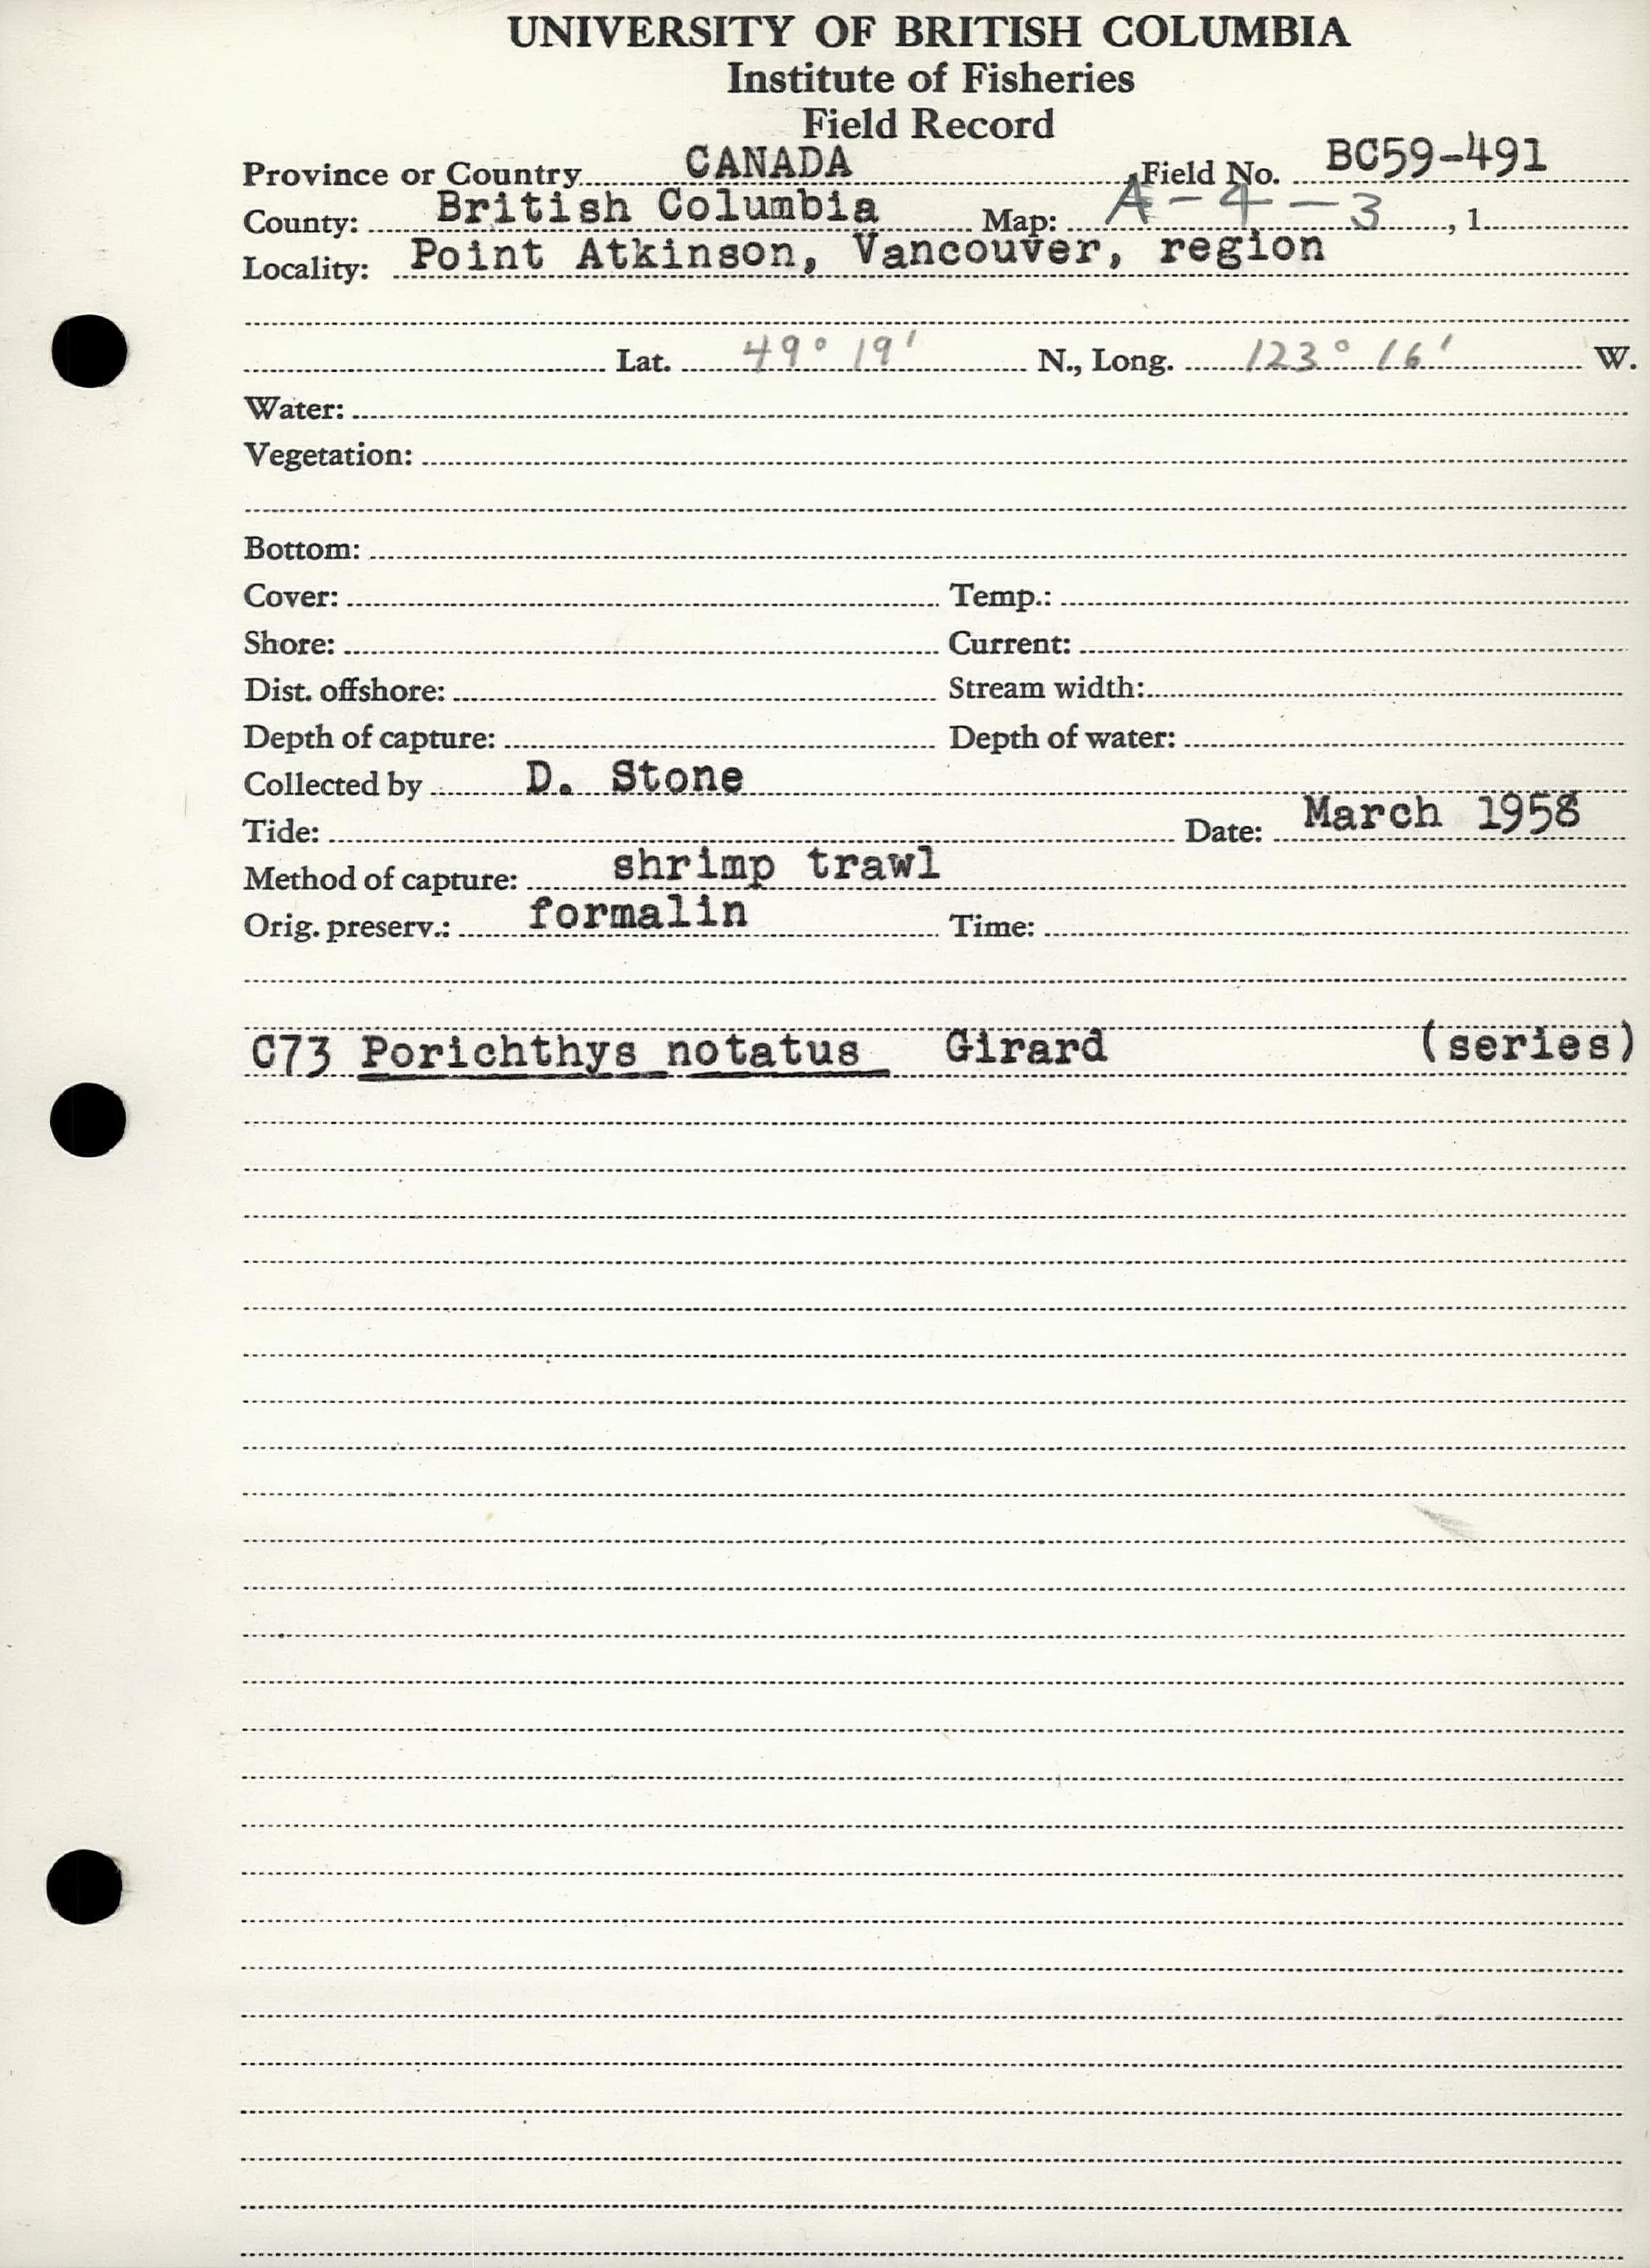 UNIVERSITY OF BRITISH COLUMBIA
Institute of Fisheries
Field Record
Province or Country CANADA Field No. BC59-491
County: British Columbia Map: A-4-3, 1
Locality: Point Atkinson, Vancouver, region
Lat. 49° 19' N., Long. 123° 16' W.
Water:
Vegetation:
Bottom:
Cover: Temp.:
Shore: Current:
Dist. offshore: Stream width:
Depth of capture: Depth of water:
Collected by D. Stone
Tide: Date: March 1958
Method of capture: shrimp trawl
Orig. preserv.: formalin Time:
C73 Porichthys notatus Girard (series)